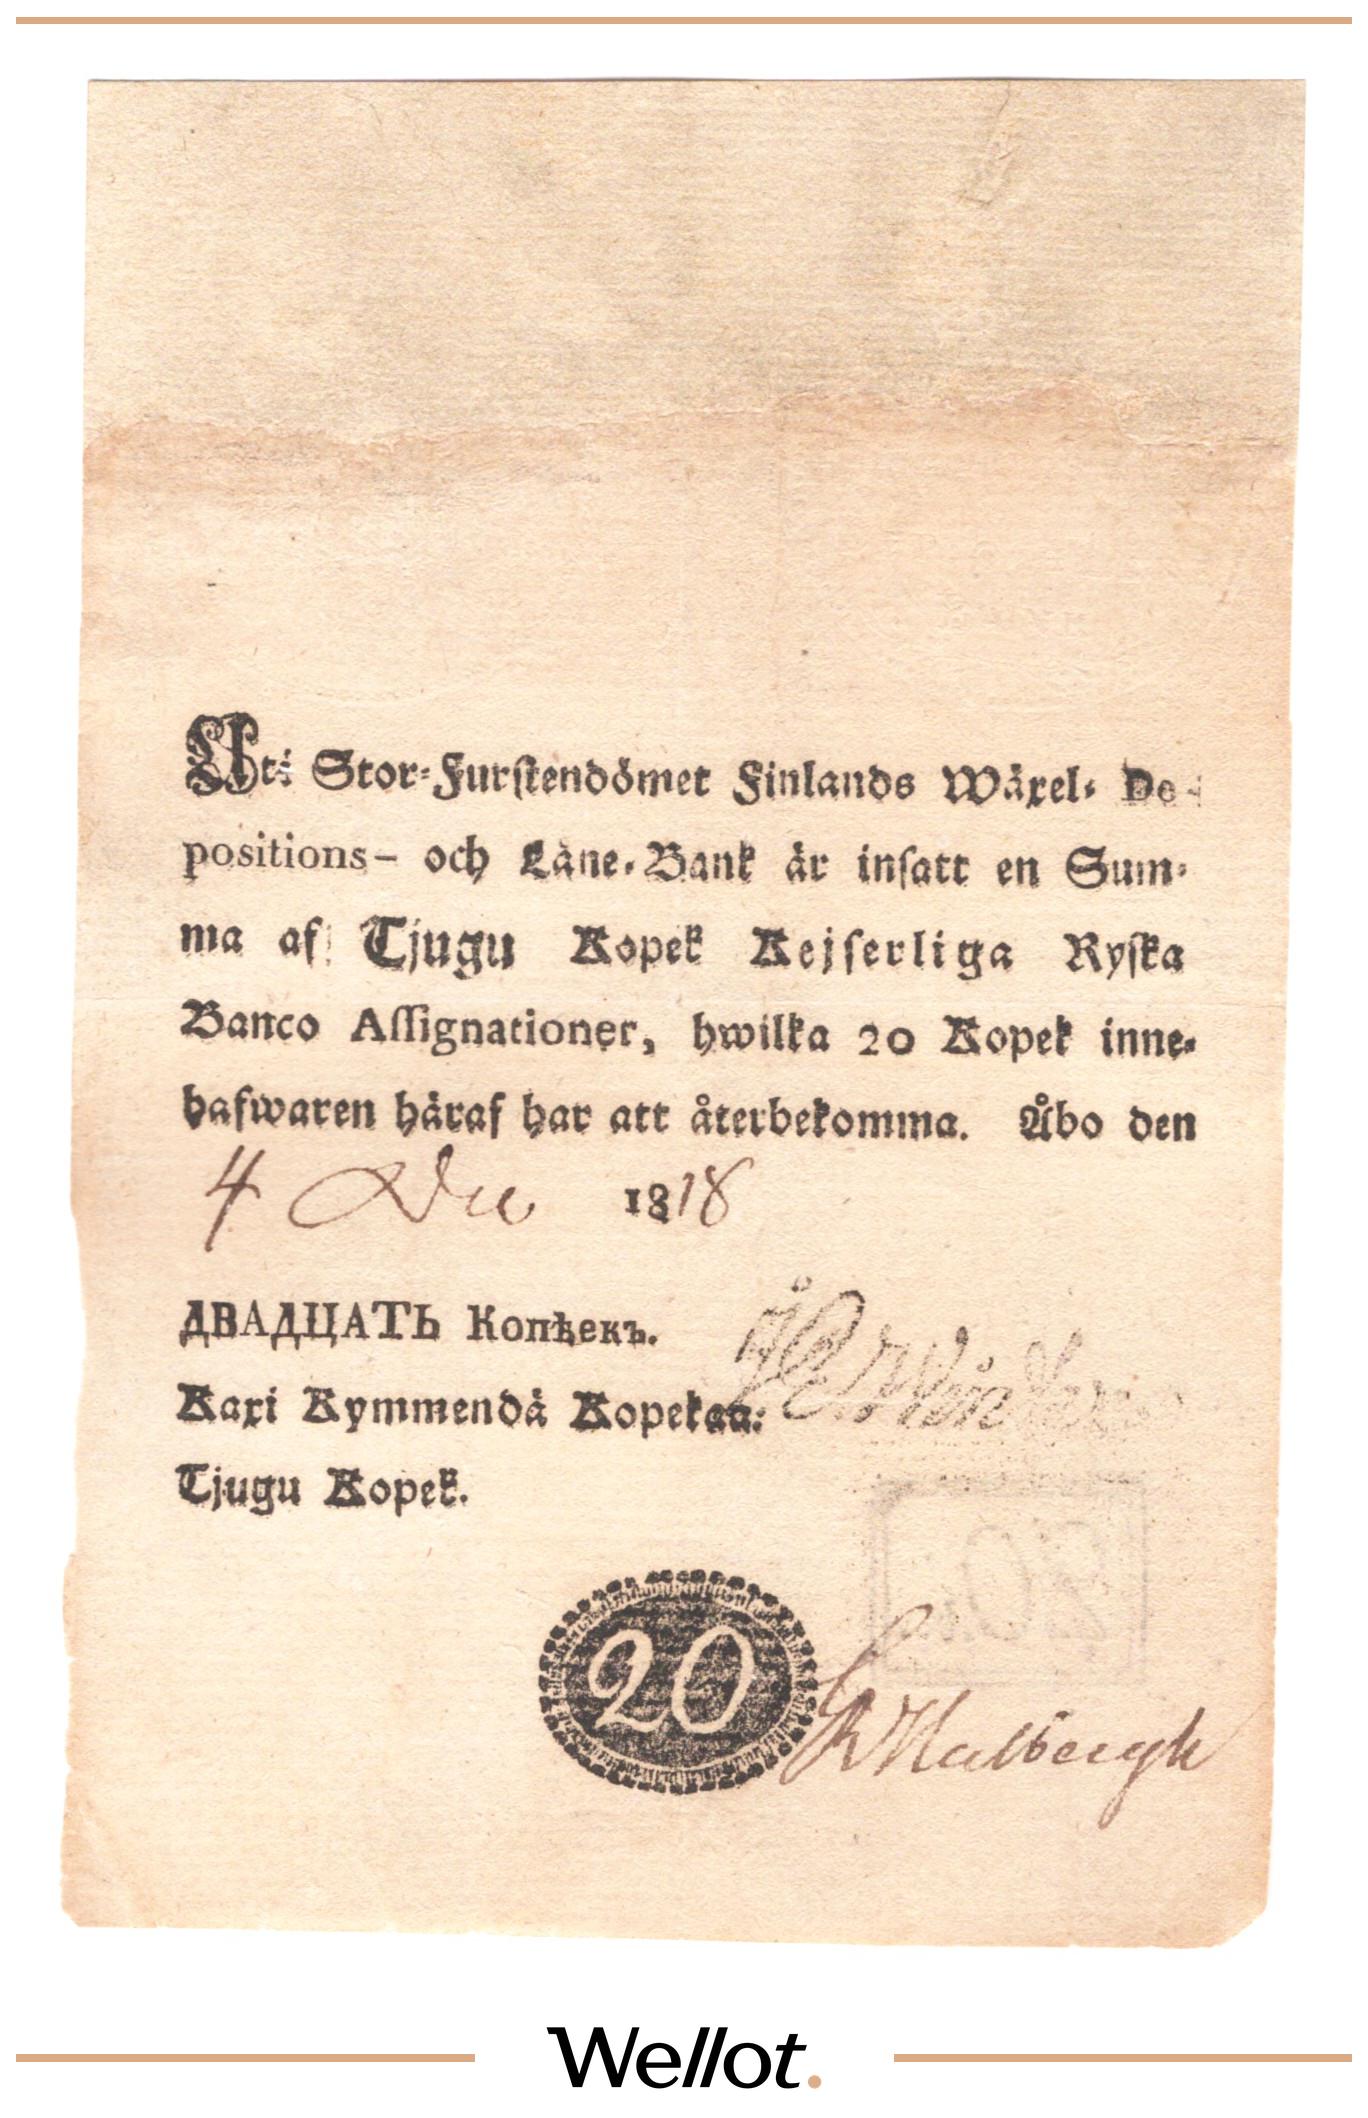 Uti Stor-Furstendömet Finlands Wäxel- De-
positions- och Låne-Bank är insatt en Sum-
ma af Tjugu Kopek Kejserliga Ryska
Banco Assignationer, hwilka 20 Kopek inne-
hafwaren häraf har att återbekomma. Åbo den
4 Dec 1818
ДВАДЦАТЬ Копѣекъ.
Kaxi Kymmendä Kopekaa:
Tjugu Kopek.
20
Wellot.